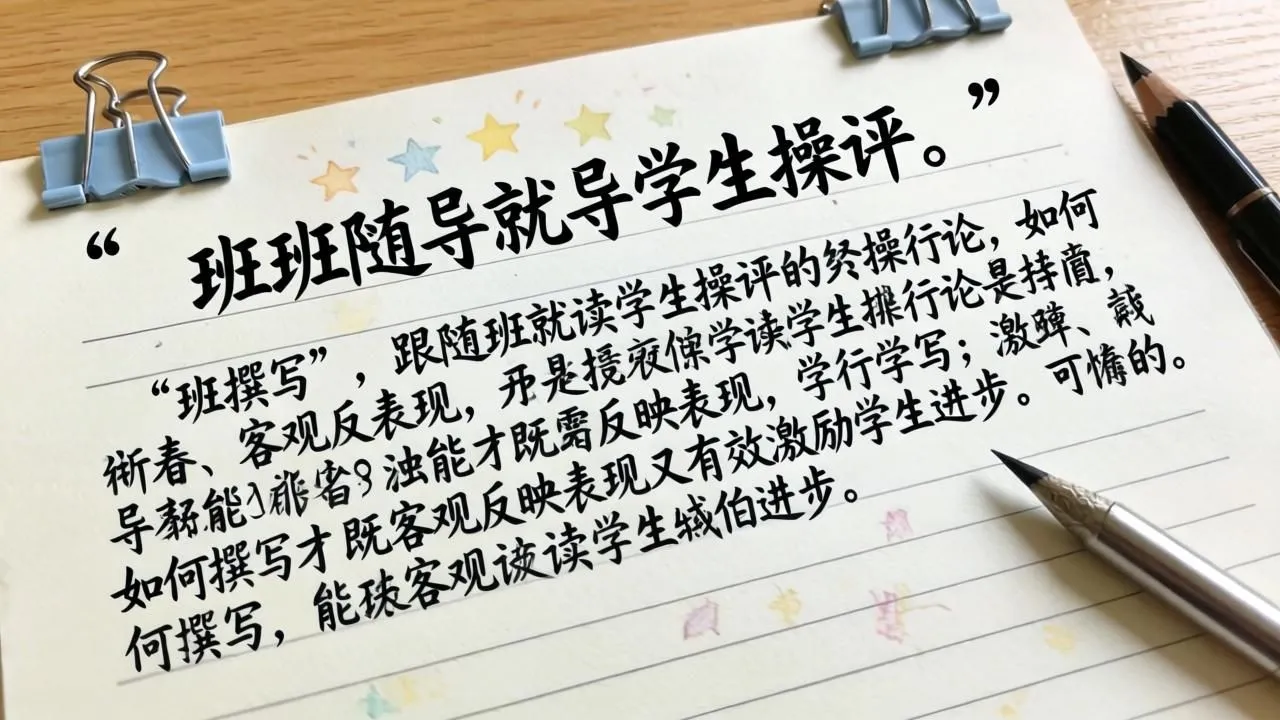 “ 班班随导就导学生操评。”
“班撰写”，跟随班就读学生操评的终操行论，如何
春、客观反表现，是学读学生行论是持，
导能能才既需反映表现，学行学写；激、
如何撰写才既客观反映表现又有效激励学生进步。可的。
何撰写，能客观读学生伯进步。